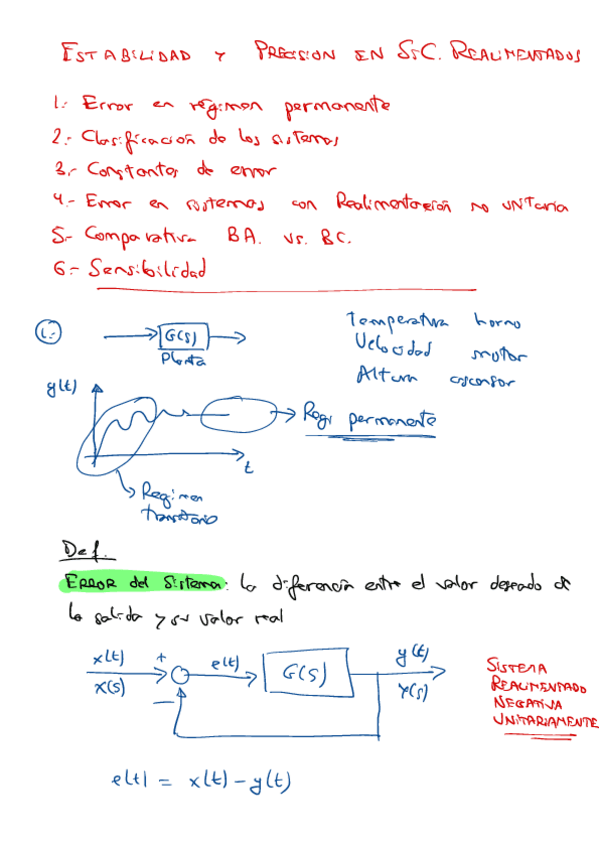 ESTABILIDAD Y PRECISION EN SIC. REALIMENTADOS
1.- Error en régimen permanente
2.- Clasificación de los sistemas
3.- Constantes de error
4.- Error en sistemas con Realimentación no UNITaria
5.- Comparativa BA. vs. BC.
6.- Sensibilidad
1.-
G(s)
Planta
Temperatura horno
Velocidad motor
Altura ascensor
y(t)
Regi permanente
t
Regimen
transitorio
Def.
ERROR del Sistema: la diferencia entre el valor deseado de
la salida y su valor real
x(t) + e(t) G(s) y(t)
X(s) - Y(s)
SISTEMA
REALIMENTADO
NEGATIVA
UNITARIAMENTE
e(t) = x(t) - y(t)